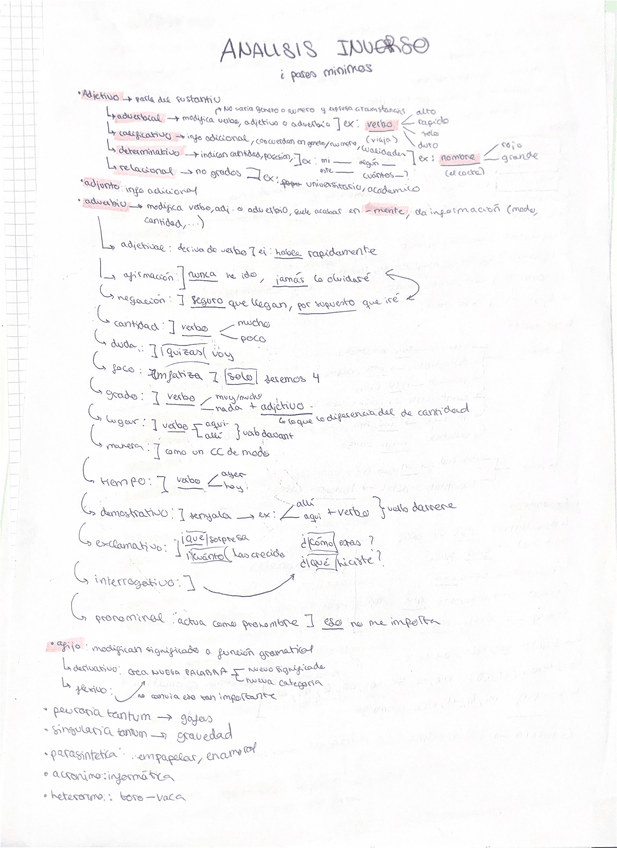 ANALISIS INVERSO
i pares minimos
• Adjetivo → parte del sustantivo
No varia genero o numero y expresa circunstancias
↳ adverbial → modifica verbo, adjetivo o adverbio ] ex: verbo < alto rapido solo duro
↳ calificativo → info adicional, concuerdan en genero/numero, (viejo) cualidades
↳ determinativo → indican cantidad, posesión, ] ex: mi ___ algún ___ este ___ cuántos __?
] ex: nombre < rojo grande
(el coche)
↳ relacional → no grados ] ex: universitario, academico
• adjunto info adicional
• adverbio → modifica verbo, adj. o adverbio, suele acabar en -mente, da información (modo,
cantidad, ...)
adjetival: deriva de verbo ] ej: habla rapidamente
afirmación: ] nunca he ido, jamás lo olvidaré
negación: ] seguro que llegan, por supuesto que iré
cantidad: ] verbo < mucho poco
duda: ] ¡quizas! voy
foco: Enfatiza ] solo seremos 4
grado: ] verbo < muy/mucho nada + adjetivo
↳ lo que lo diferencia del de cantidad
lugar: ] verbo aqui allí } vab davant
manera: ] como un CC de modo
tiempo: ] verbo < ayer hoy
demostrativo: ] senyala → ex: < allí aqui + verbo } verbo darrere
exclamativo: ] ¡que! sorpresa
¡cuánto! has crecido
¿cómo estas?
¿qué hiciste?
interrogativo: ]
pronominal: actua como pronombre ] eso no me importa
• afijo: modifican significado o función gramatical
↳ derivativo: crea NUEVA PALABRA nuevo significado nueva categoria
↳ flexivo: no cambia eso tan importante
• peuraria tantum → gafas
• singularia tantum → gravedad
• parasintetía: empapelar, enamorar
• acronimo: informática
• heteronimo: toro - vaca